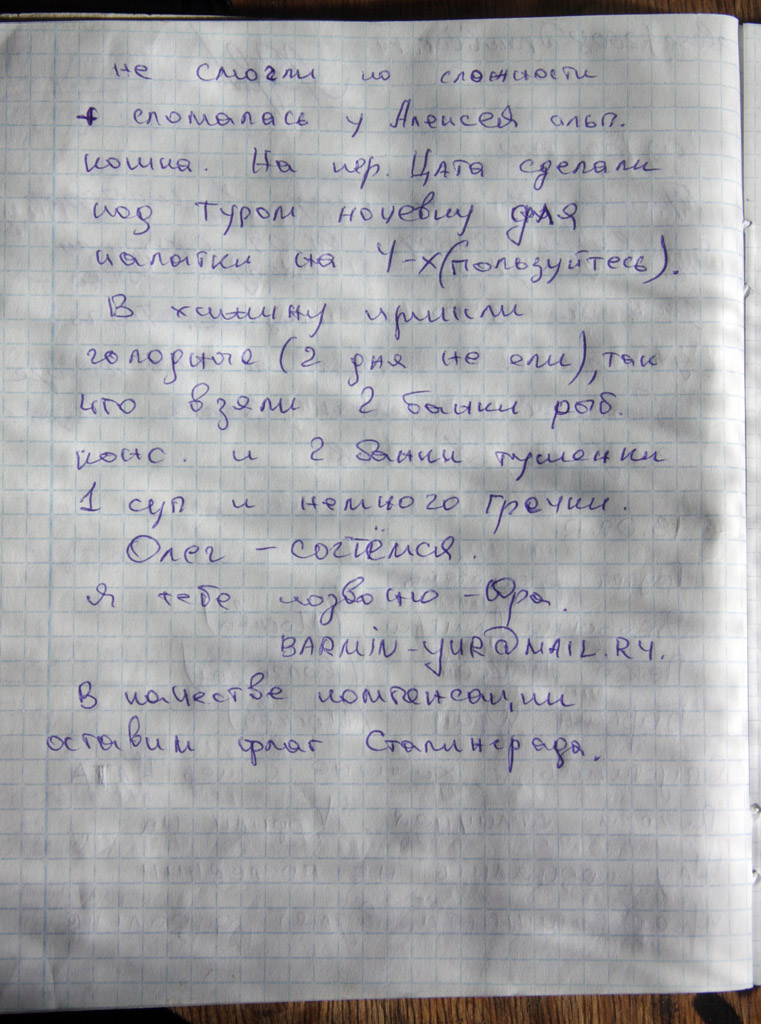 не смогли по сложности
+ сломалась у Алексея альп.
кошка. На пер. Цата сделали
под туром ночевку для
палатки на 4-х (пользуйтесь).
В хижину пришли
голодные (2 дня не ели), так
что взяли 2 банки рыб.
конс. и 2 банки тушенки
1 суп и немного гречки.
Олег - сочтёмся.
Я тебе позвоню - Юра.
BARMIN-YUR@MAIL.RU.
В качестве компенсации
оставим флаг Сталинграда.